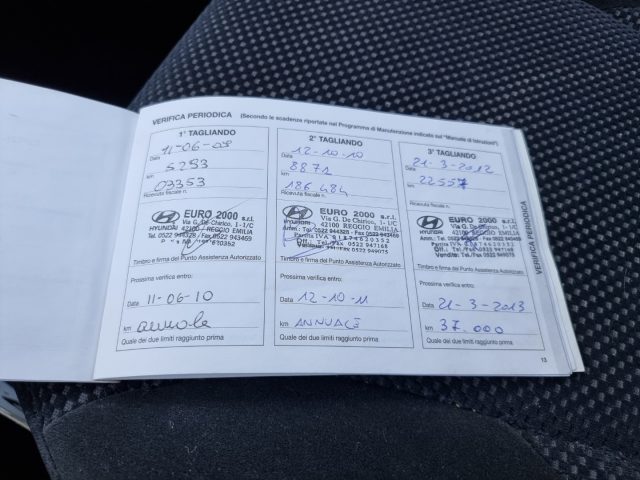 VERIFICA PERIODICA (Secondo le scadenze riportate nel Programma di Manutenzione indicate sul "Manuale di Istruzioni")
1° TAGLIANDO
Data 11-06-09
5293
03353
Ricevuta fiscale n.
EURO 2000 s.r.l.
Via G. De Chirico, 1-1/C
HYUNDAI 42100 REGGIO EMILIA
Tel. 0522 944328 - Fax 0522 943469
Timbro e firma del Punto Assistenza Autorizzato
Prossima verifica entro:
Data 11-06-10
km annuale
Quale dei due limiti raggiunto prima
2° TAGLIANDO
Data 12-10-10
8871
186484
Ricevuta fiscale n.
EURO 2000 s.r.l.
Via G. De Chirico, 1-1/C
42100 REGGIO EMILIA
HYUNDAI
Timbro e firma del Punto Assistenza Autorizzato
Prossima verifica entro:
Data 12-10-11
km ANNUALE
Quale dei due limiti raggiunto prima
3° TAGLIANDO
Data 21-3-2012
km 22557
Ricevuta fiscale n.
EURO 2000 s.r.l.
Via G. De Chirico, 1-1/C
42100 REGGIO EMILIA
HYUNDAI
Timbro e firma del Punto Assistenza Autorizzato
Prossima verifica entro:
Data 21-3-2013
km 37.000
Quale dei due limiti raggiunto prima
VERIFICA PERIODICA
13